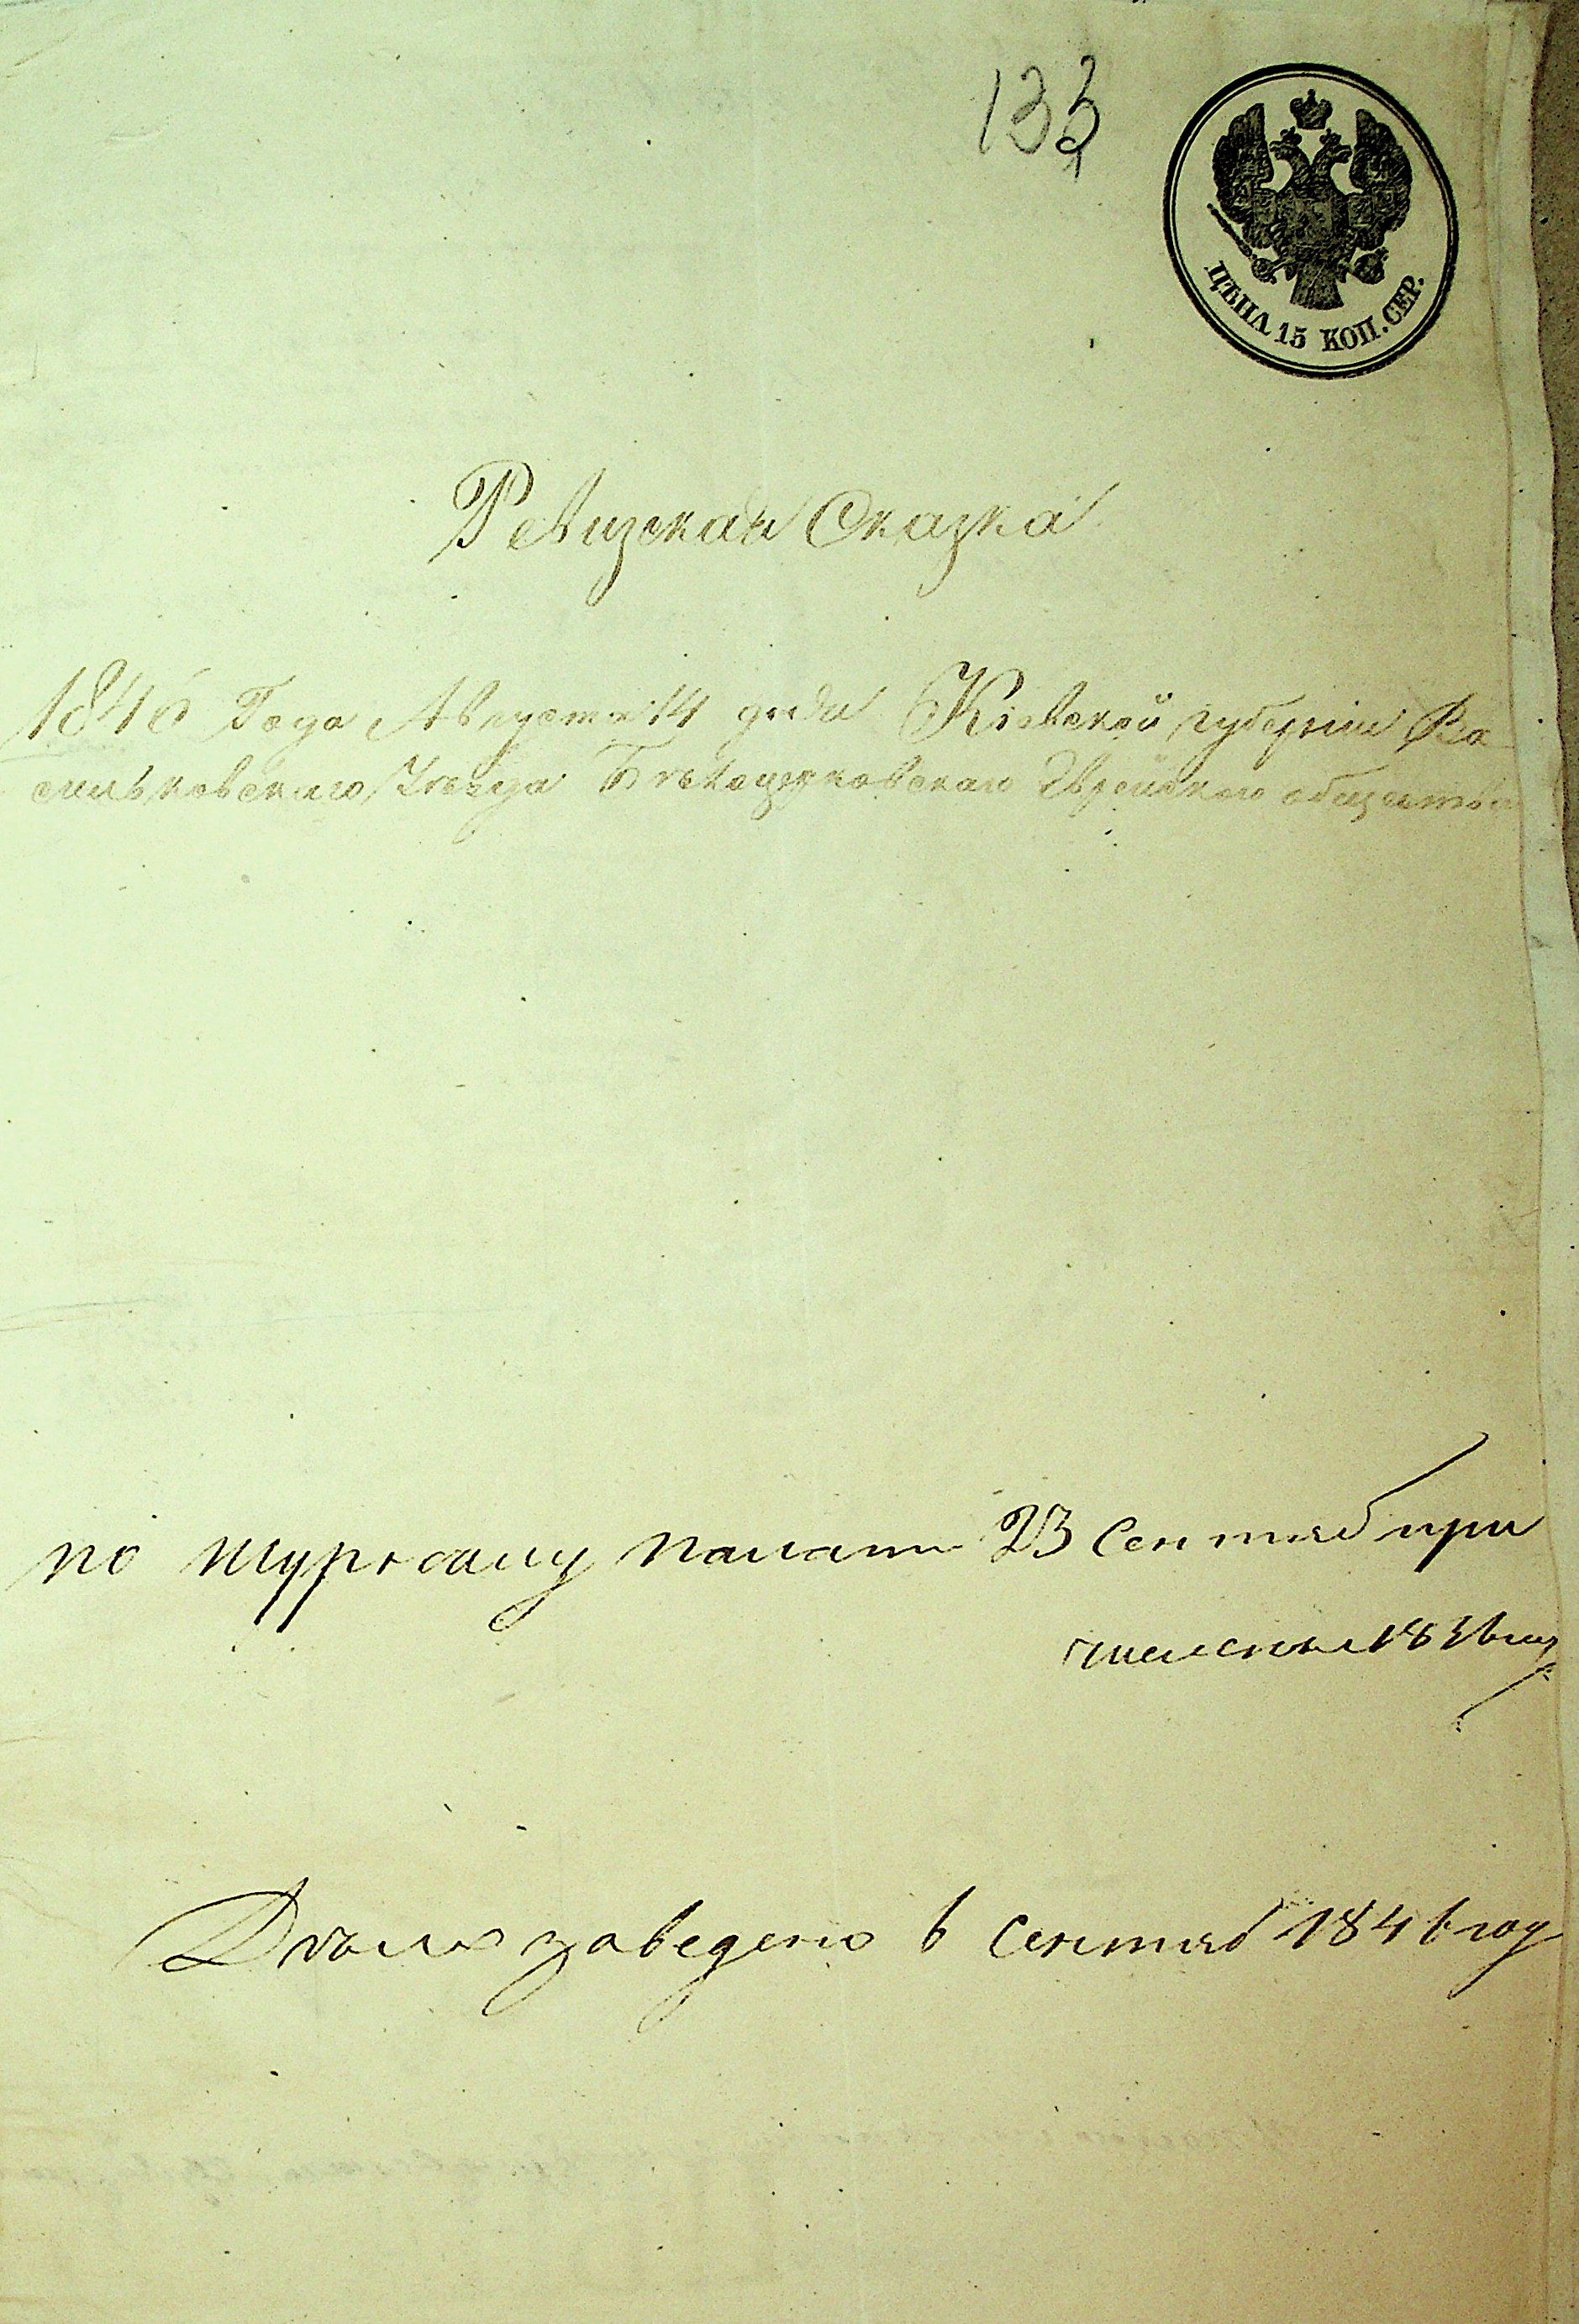 133
ЦѢНА 15 КОП. СЕР.
Ревизская Сказка
1846 Года Августа 14 дня Кіевской губерніи Ва-
сильковскаго Уѣзда Бѣлоцерковскаго Еврейскаго общества
по журналу палаты 23 Сентяб при
численъ
Дѣло заведено в Сентяб 1846 году